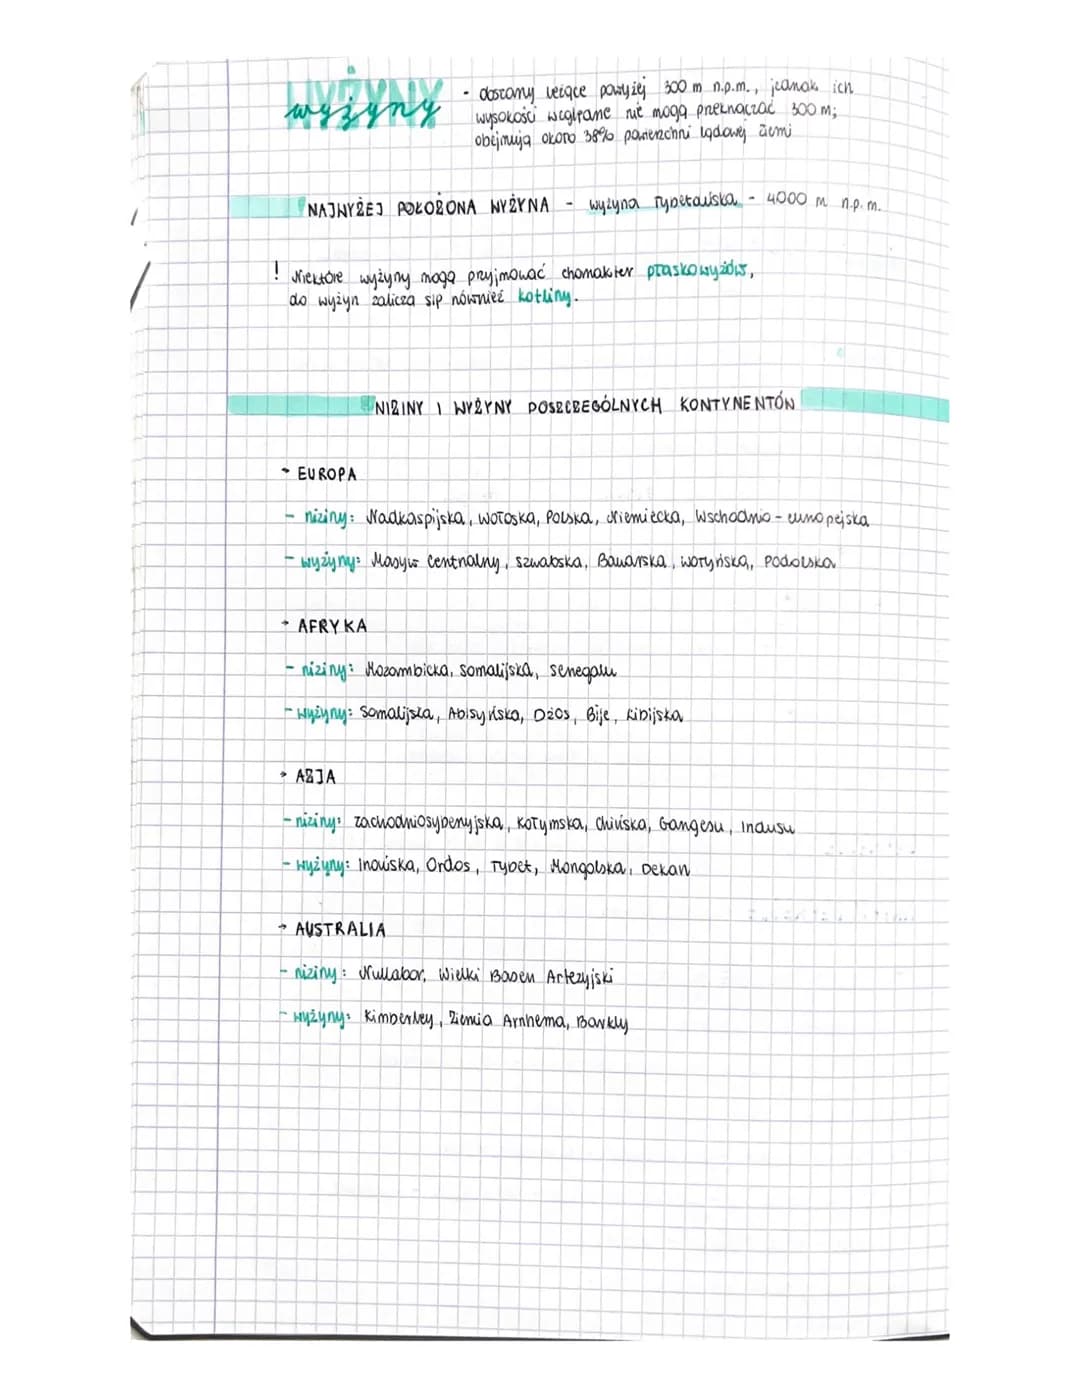 WYŻYNY
wyżyny
- obszary leżące powyżej 300 m n.p.m., jednak ich
wysokości względne nie mogą przekraczać 300 m;
obejmują około 38% powierzchni lądowej Ziemi
NAJWYŻEJ POŁOŻONA WYŻYNA - Wyżyna Tybetańska - 4000 m n.p.m.
! Niektóre wyżyny mogą przyjmować charakter płaskowyżów,
do wyżyn zalicza się również kotliny.
NIZINY I WYŻYNY POSZCZEGÓLNYCH KONTYNENTÓW
→ EUROPA
- niziny: Nadkaspijska, Wołoska, Polska, Niemiecka, Wschodnio-europejska
- wyżyny: Masyw Centralny, Szwabska, Bawarska, Wołyńska, Podolska
→ AFRYKA
- niziny: Mozambicka, Somalijska, Senegalu
- wyżyny: Somalijska, Abisyńska, Dżos, Bije, Libijska
→ AZJA
- niziny: Zachodniosyberyjska, Kołymska, Chińska, Gangesu, Indusu
- wyżyny: Indyjska, Ordos, Tybet, Mongolska, Dekan
→ AUSTRALIA
- niziny: Nullabor, Wielki Basen Artezyjski
- wyżyny: Kimberley, Ziemia Arnhema, Barkly